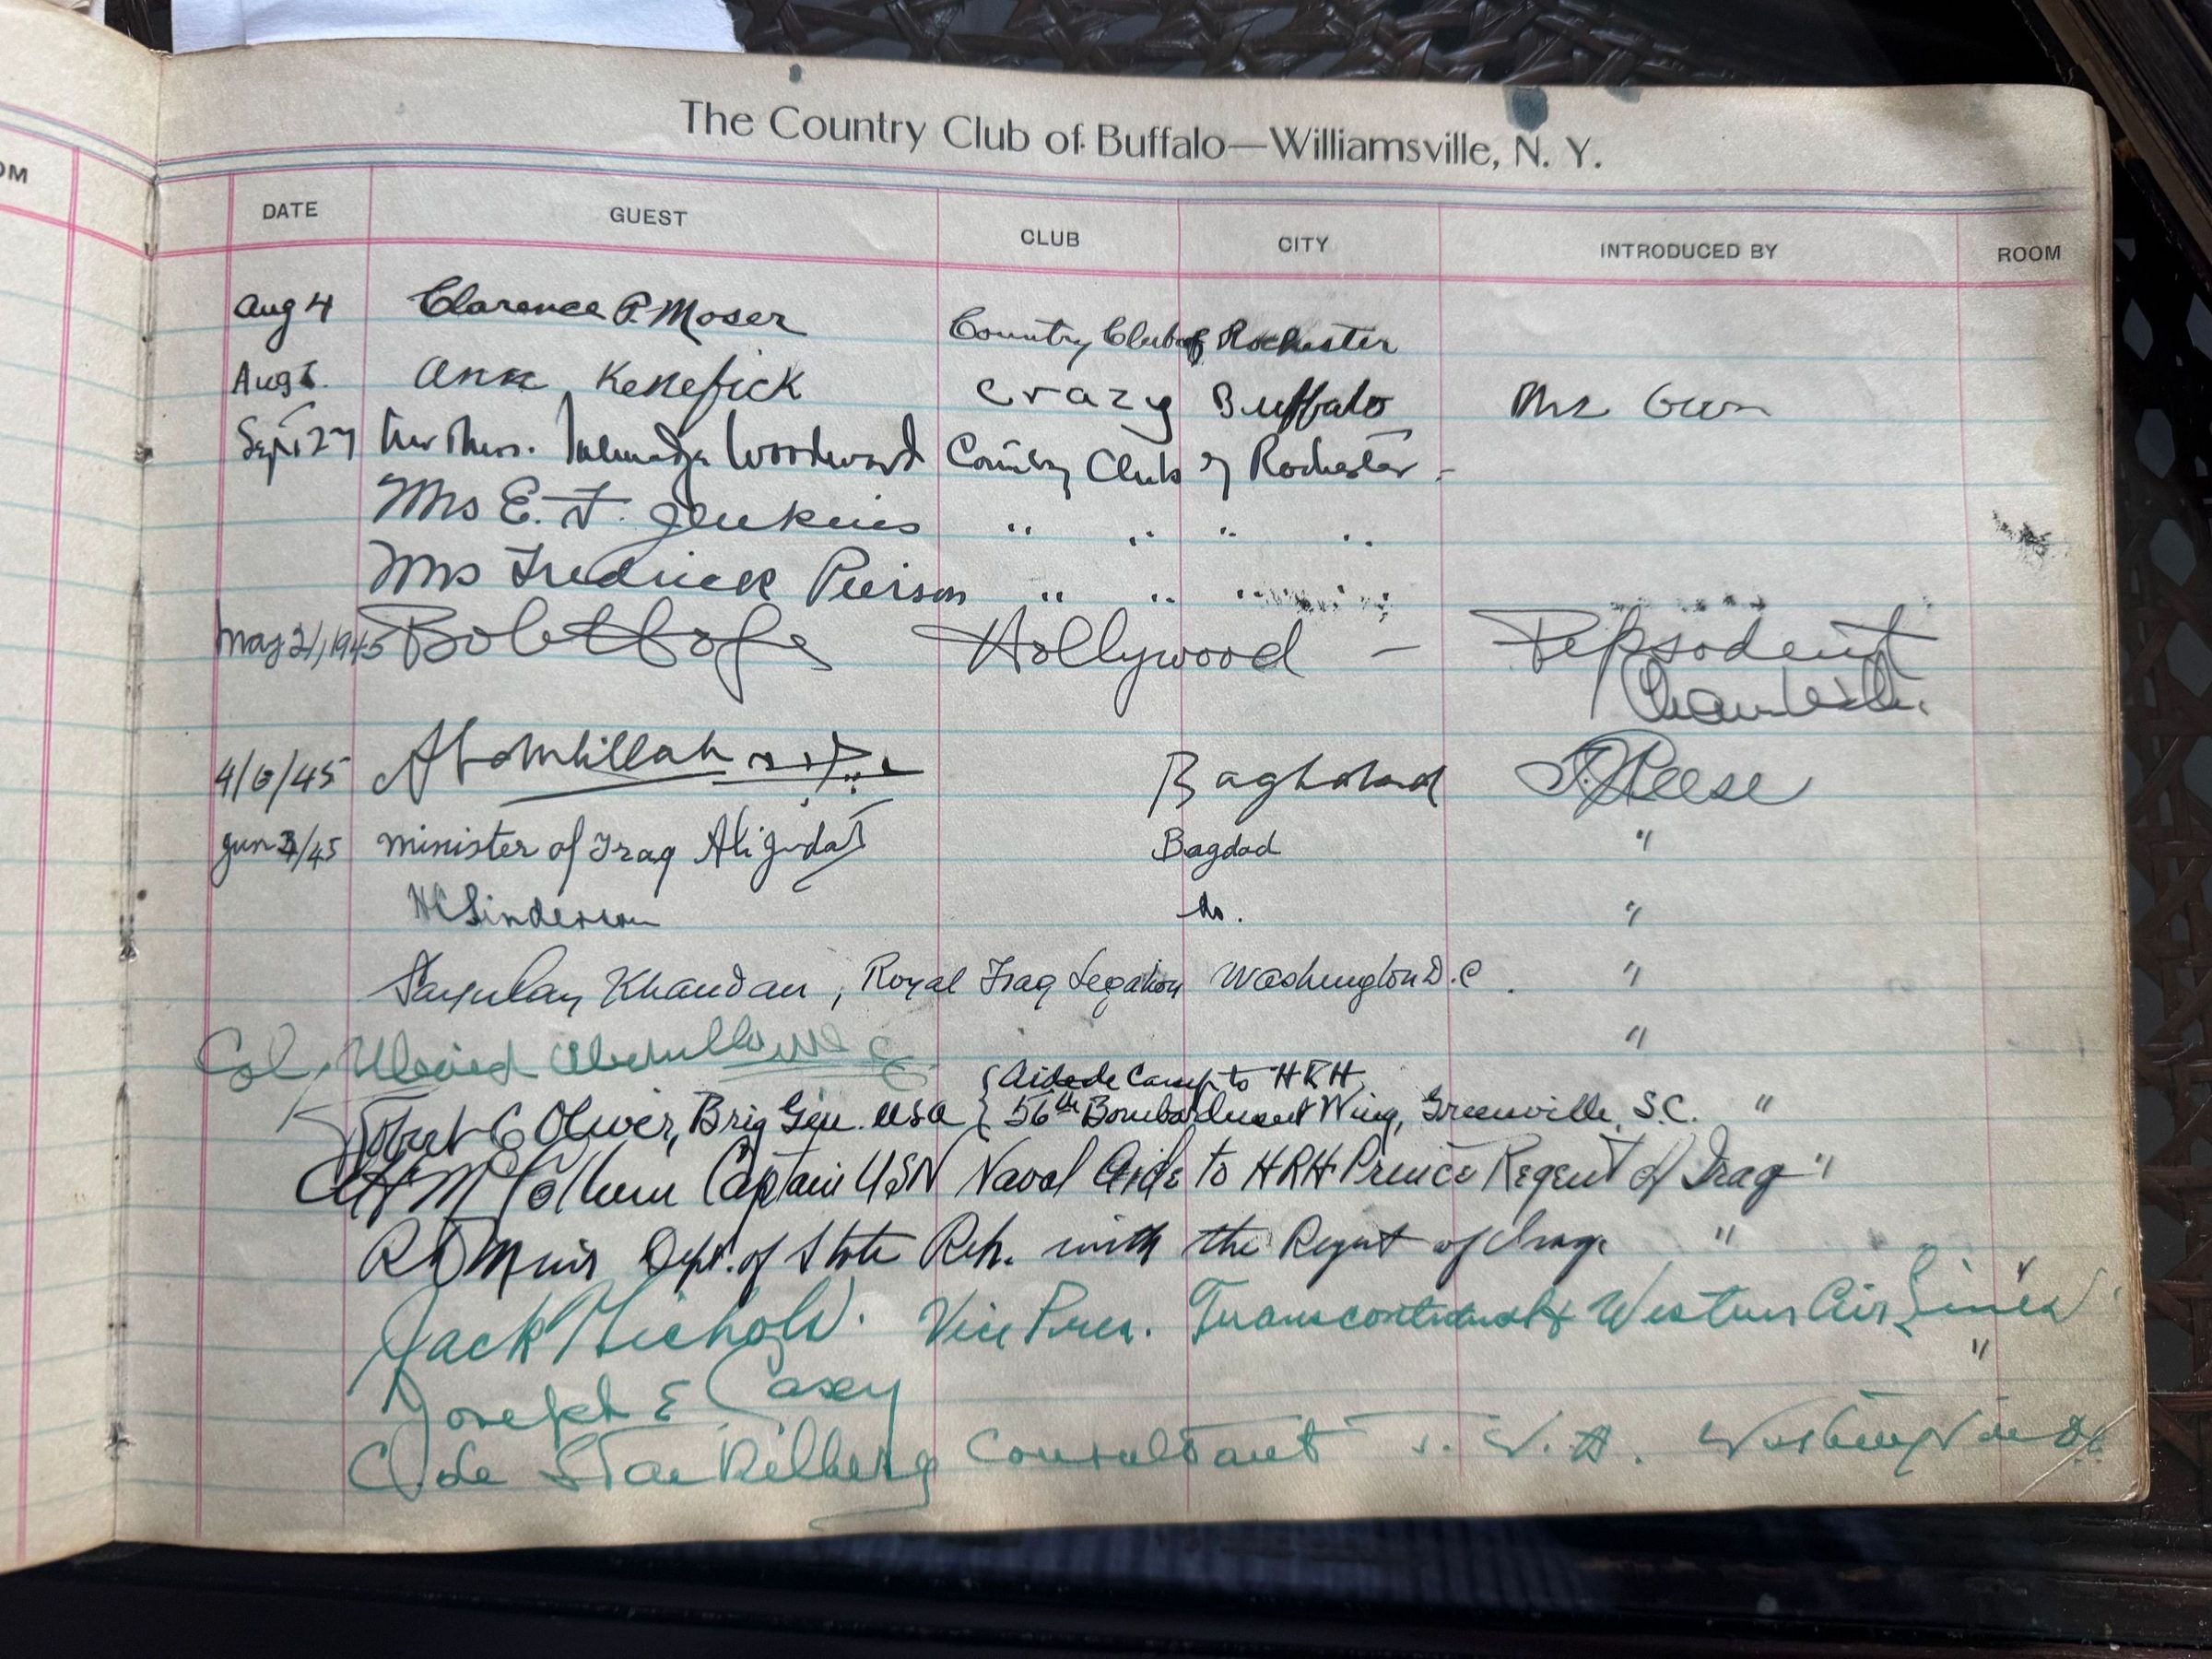 OM
The Country Club of Buffalo—Williamsville, N. Y.
DATE GUEST CLUB CITY INTRODUCED BY ROOM
Aug 4 Clarence P. Moser Country Club of Rochester
Aug Ann Kenefick Crazy Buffalo Mr
Sept 27 Woodward Country Club of Rochester -
Mrs E. F. Jenkins " " " "
Mrs Fredrick Pierson " " " "
May 21, 1945 Bob Hope Hollywood — Pepsodent
4/6/45 Abdulillah Baghdad Reese
Jun 3/45 Minister of Iraq Ali Jawdat Bagdad "
HC Sinderson do. "
Khandan, Royal Iraq Legation Washington D.C. "
Col, Ubaid Abdullah "
{ Aide de Camp to HRH,
Robert C Oliver, Brig Gen. USA { 56th Bombardment Wing, Greenville, S.C. "
Captain USN Naval Aide to HRH Prince Regent of Iraq "
R D Muir Dept. of State Rep. with the Regent of Iraq. "
Jack Nichols. Vice Pres. Transcontinental & Western Air Lines "
Joseph E Casey "
Stackelberg Consultant T. W. A. Washington DC